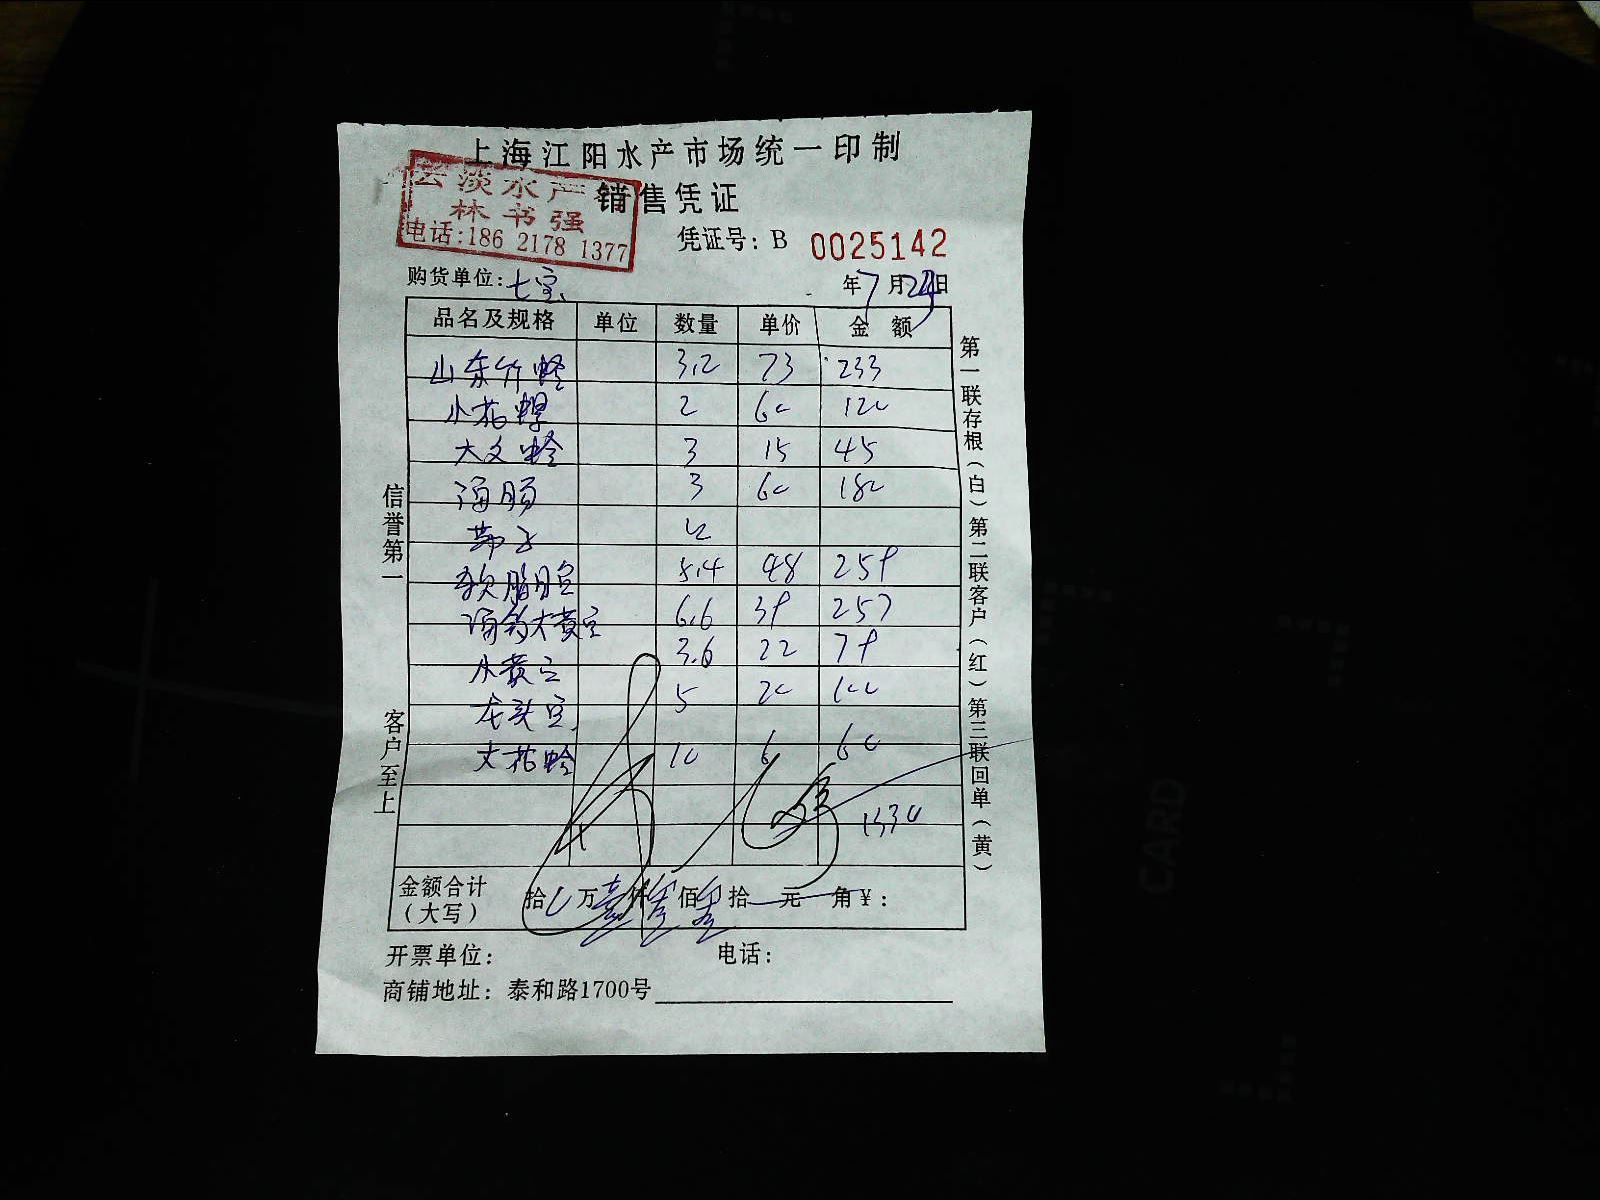 上海江阳水产市场统一印制
销售凭证
云淡水产
林书强
电话:186 2178 1377
凭证号: B 0025142
购货单位: 七宝
年7月24日
品名及规格 单位 数量 单价 金额
山东竹蛏 3.2 73 233
小花螺 2 60 120
大文蛤 3 15 45
海肠 3 60 180
带子 12
5.4 48 259
6.6 39 257
小黄鱼 3.6 22 79
龙头鱼 5 20 100
大花蛤 10 6 60
1330
金额合计(大写) 拾 万 壹仟 叁佰 叁拾 元 角 ¥:
开票单位: 电话:
商铺地址: 泰和路1700号
信誉第一
客户至上
第一联存根(白)第二联客户(红)第三联回单(黄)